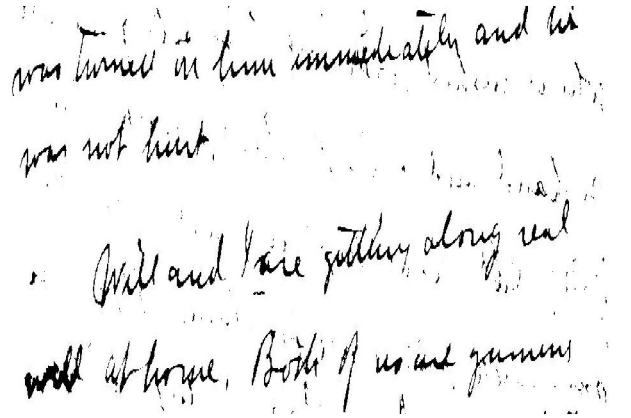 was turned on him immediately and he
was not hurt.
Will and I are getting along real
well at home. Both of us are